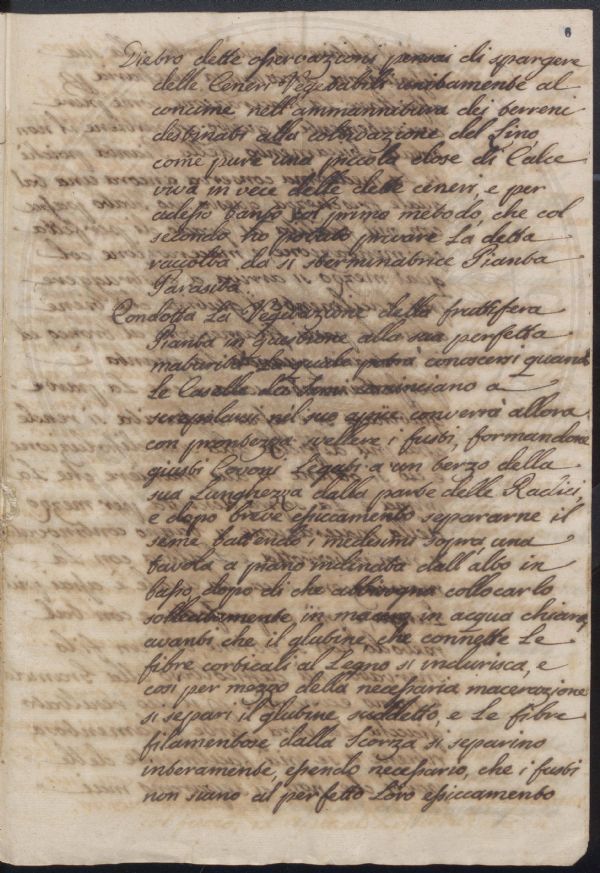 6
Dietro dette osservazioni pensai di spargere
delle Ceneri Vegetabili unitamente al
concime nell'ammannitura dei terreni
destinati alla coltivazione del Lino,
come pure una piccola dose di Calce
viva in vece delle dette ceneri, e per
adesso tanto col primo metodo, che col
secondo ho potuto privare La detta
raccolta da sì sterminatrice Pianta
Parasita
Condotta La Vegetazione della fruttifera
Pianta in questione alla sua perfetta
maturità la quale potrà conoscersi quando
Le Caselle dei Semi cominciano a
screpolarsi nel suo apice converrà allora
con prontezza svellere i fusti, formandone
giusti Covoni Legati a un terzo della
sua Lunghezza dalla parte delle Radici,
e dopo breve essiccamento separarne il
seme battendo i medesimi sopra una
tavola a piano inclinata dall'alto in
basso, dopo di che abbisogna collocarlo
sollecitamente in in acqua chiara,
avanti che il glutine che connette Le
fibre corticali al Legno si indurisca, e
così per mezzo della necessaria macerazione
si separi il glutine suddetto, e Le fibre
filamentose dalla Scorza si separino
interamente, essendo necessario, che i fusti
non siano al perfetto Loro essiccamento